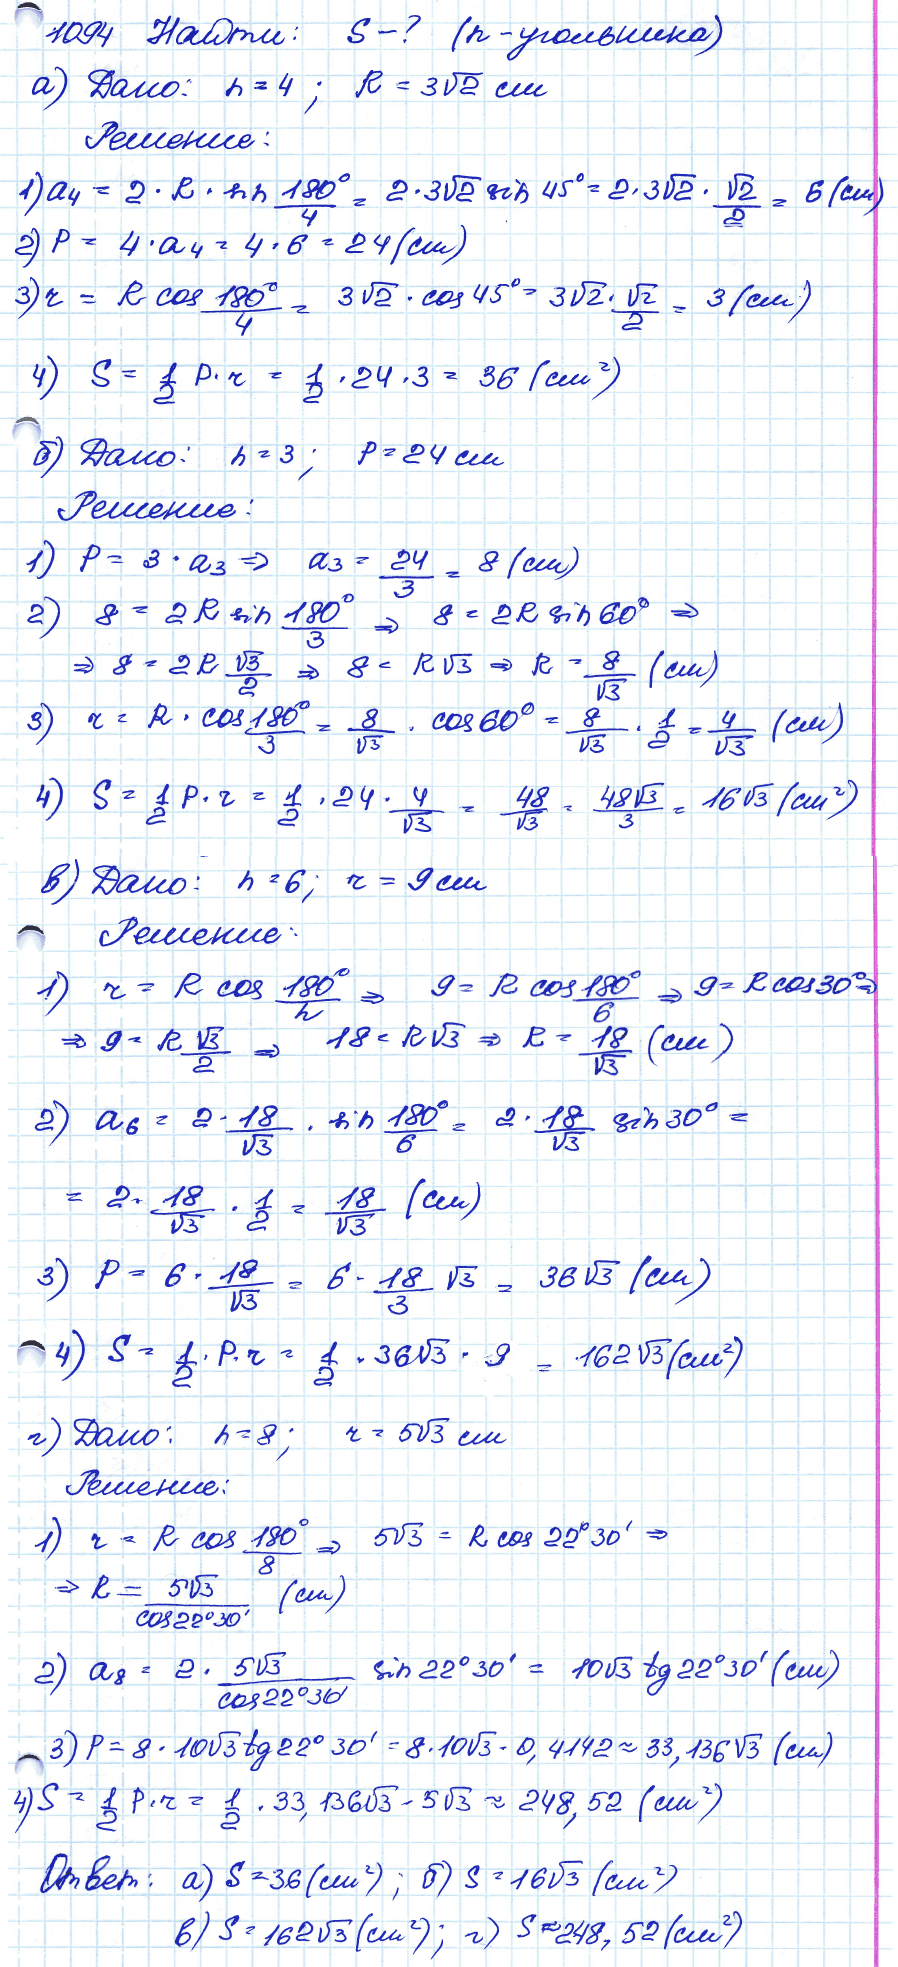 1094 Найти: S-? (n-угольника)
а) Дано: n = 4; R = 3√2 см
Решение:
1) a₄ = 2·R·sin 180°/4 = 2·3√2 sin 45° = 2·3√2·√2/2 = 6 (см)
2) P = 4·a₄ = 4·6 = 24 (см)
3) r = R cos 180°/4 = 3√2·cos 45° = 3√2·√2/2 = 3 (см)
4) S = 1/2 P·r = 1/2·24·3 = 36 (см²)
б) Дано: n = 3; P = 24 см
Решение:
1) P = 3·a₃ ⇒ a₃ = 24/3 = 8 (см)
2) 8 = 2R sin 180°/3 ⇒ 8 = 2R sin 60° ⇒
⇒ 8 = 2R √3/2 ⇒ 8 = R√3 ⇒ R = 8/√3 (см)
3) r = R·cos 180°/3 = 8/√3·cos 60° = 8/√3·1/2 = 4/√3 (см)
4) S = 1/2 P·r = 1/2·24·4/√3 = 48/√3 = 48√3/3 = 16√3 (см²)
в) Дано: n = 6; r = 9 см
Решение:
1) r = R cos 180°/n ⇒ 9 = R cos 180°/6 ⇒ 9 = R cos 30° ⇒
⇒ 9 = R √3/2 ⇒ 18 = R√3 ⇒ R = 18/√3 (см)
2) a₆ = 2·18/√3·sin 180°/6 = 2·18/√3 sin 30° =
= 2·18/√3·1/2 = 18/√3 (см)
3) P = 6·18/√3 = 6·18/3 √3 = 36√3 (см)
4) S = 1/2·P·r = 1/2·36√3·9 = 162√3 (см²)
г) Дано: n = 8; r = 5√3 см
Решение:
1) r = R cos 180°/8 ⇒ 5√3 = R cos 22°30' ⇒
⇒ R = 5√3/cos 22°30' (см)
2) a₈ = 2·5√3/cos 22°30' sin 22°30' = 10√3 tg 22°30' (см)
3) P = 8·10√3 tg 22°30' = 8·10√3·0,4142 ≈ 33,136√3 (см)
4) S = 1/2 P·r = 1/2·33,136√3·5√3 ≈ 248,52 (см²)
Ответ: а) S = 36 (см²); б) S = 16√3 (см²)
в) S = 162√3 (см²); г) S ≈ 248,52 (см²)